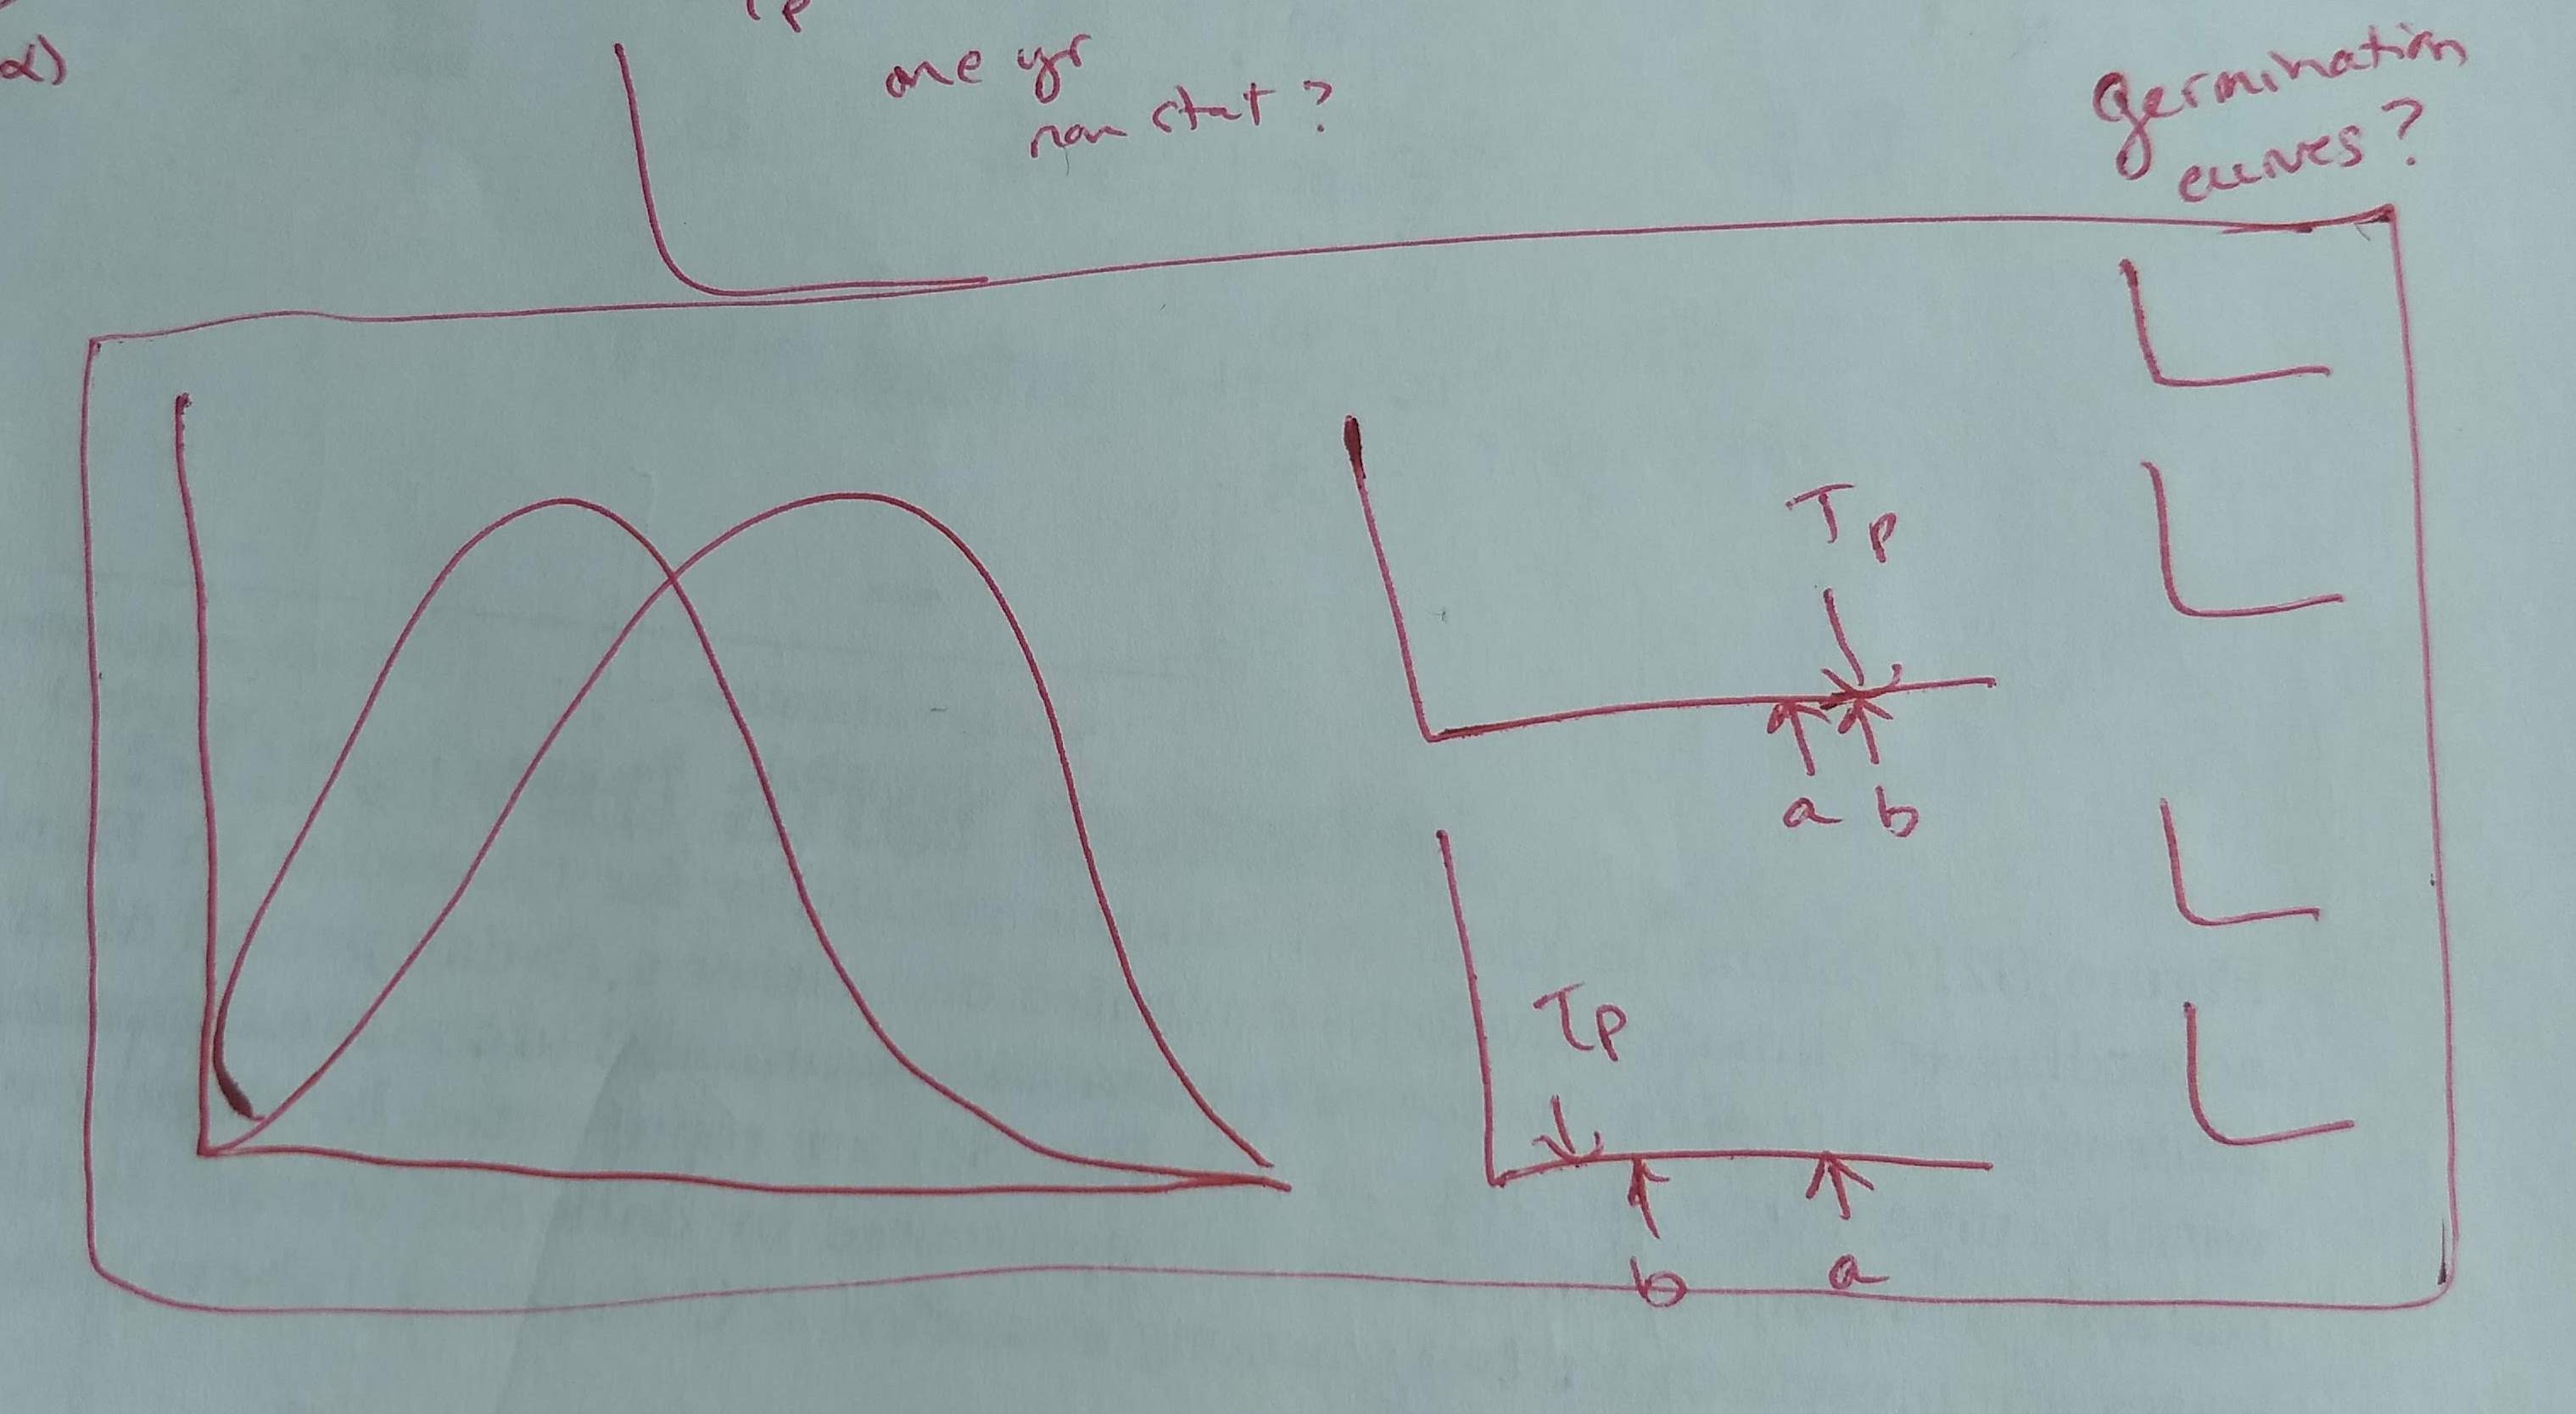 α)
τp
one yr
non stat?
germination
curves?
τp
a b
τp
b a